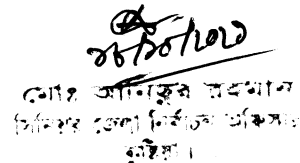 ১৮/১০/২০২১
মোঃ আনিছুর রহমান
সিনিয়র জেলা নির্বাচন অফিসার
কুষ্টিয়া।